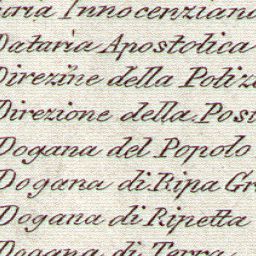 Innocenziana
Dataria Apostolica
Direzine della Poliz
Direzione della Pos
Dogana del Popolo
Dogana di Ripa Gr
Dogana di Ripetta
Dogana di Terra